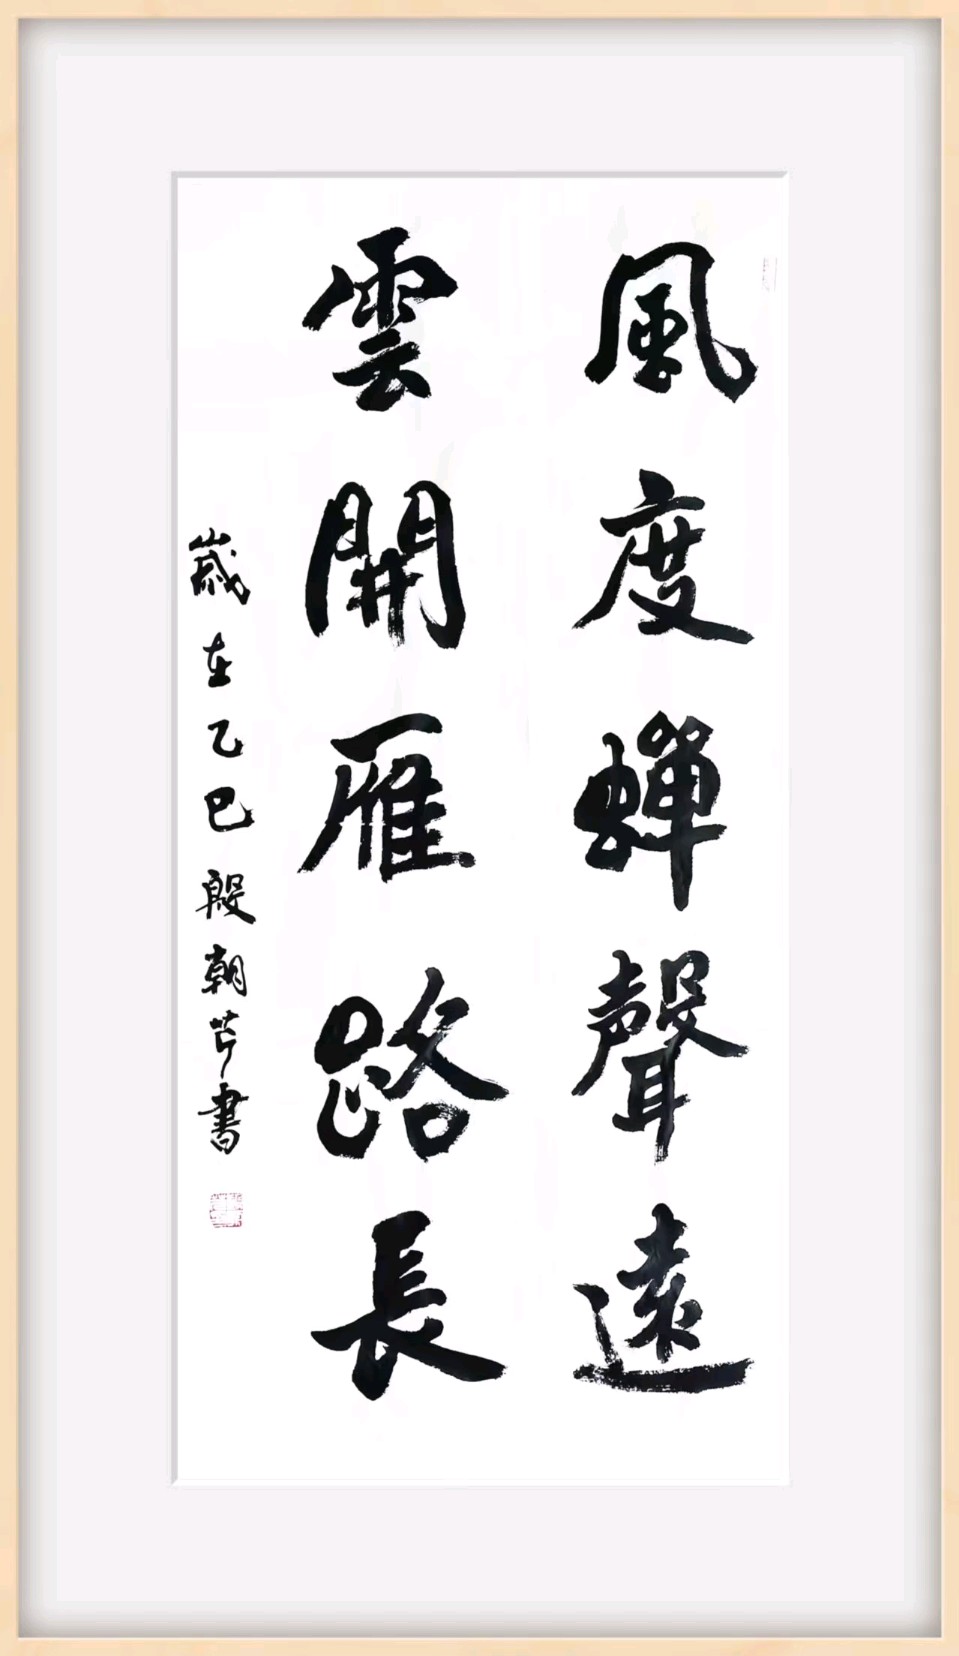 風度蟬聲遠
雲開雁路長
歲在乙巳殷朝芹書